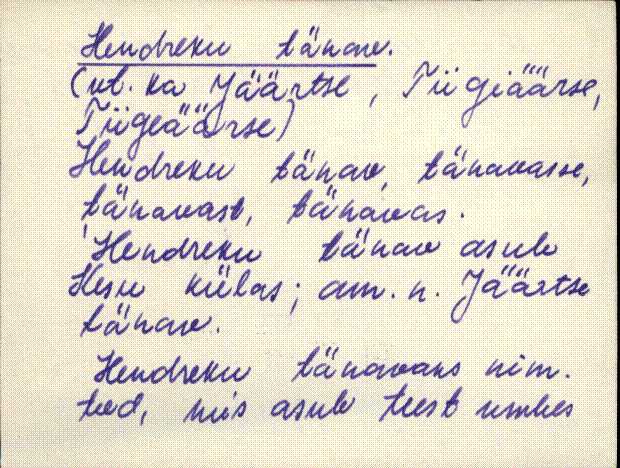 Hendreku tänav.
(vt. ka Jäärtse, Tiigiäärse,
Tiigeäärse)
Hendreku tänav, tänavasse,
tänavast, tänavas.
Hendreku tänav asub
Kesu külas; am. n. Jäärtse
tänav.
Hendreku tänavaks nim.
teed, mis asub teest umbes